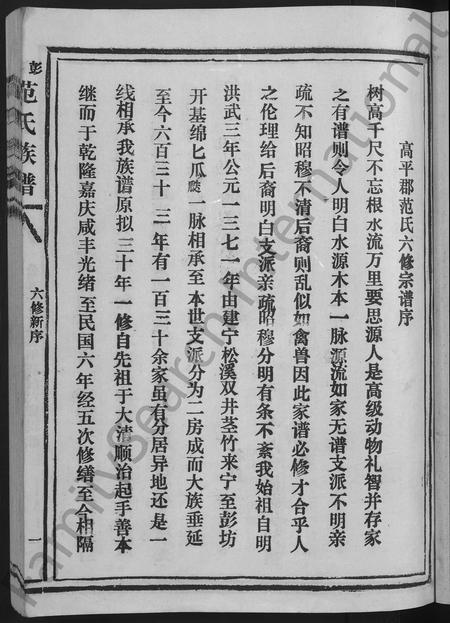 高平郡范氏六修宗谱序
树高千尺不忘根水流万里要思源人是高级动物礼智并存家
之有谱则令人明白水源木本一脉源流如家无谱支派不明亲
疏不知昭穆不清后裔则乱似如禽兽因此家谱必修才合乎人
之伦理给后裔明白支派亲疏昭穆分明有条不紊我始祖自明
洪武三年公元一三七一年由建宁松溪双井茎竹来宁至彭坊
开基绵匕瓜瓞一脉相承至本世支派分为二房成而大族垂延
至今六百三十三一年有一百三十余家虽有分居异地还是一
线相承我族谱原拟三十年一修自先祖于大清顺治起手善本
继而于乾隆嘉庆咸丰光绪至民国六年经五次修缮至今相隔
彭
范氏族谱
六修新序
一
FamilySearch International